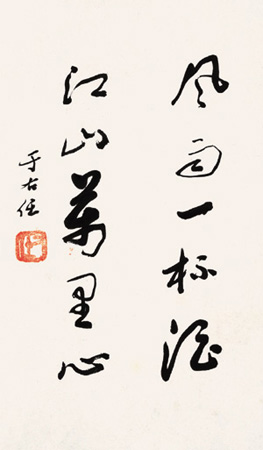 风雨一杯酒
江山萬里心
于右任